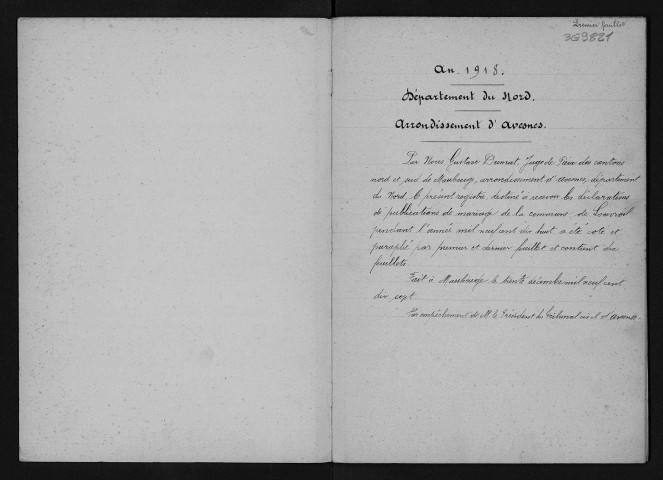 Premier feuillet
3E9821
An 1918.
Département du Nord.
Arrondissement d'Avesnes.
Par Nous Gustave Juge de Paix des cantons
nord et sud de Maubeuge, arrondissement d'Avesnes, département
du Nord, le présent registre, destiné à recevoir les déclarations
de publications de mariage de la commune de Louvroil
pendant l'année mil neuf cent dix huit a été coté et
paraphé par premier et dernier feuillet et contient dix
feuillets.
Fait à Maubeuge le trente décembre mil neuf cent
dix sept
Par empêchement de M. le Président du Tribunal civil d'Avesnes.